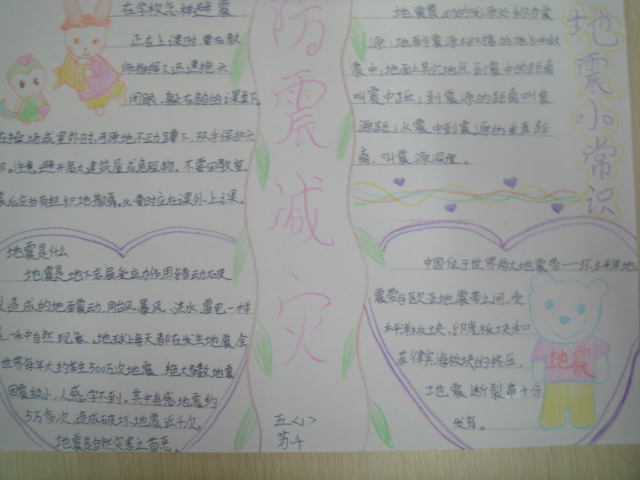 在学校怎样避震
正在上课时,要在教
师指挥下迅速抱头
闭眼、躲在各自的课桌下
在操场或室外时,可原地不动蹲下,双手保护头
部。注意避开高大建筑屋或危险物。不要回教室。
震后应当有组织地撤离。必要时应在课外上课。
地震是什么
地震是地下岩层受应力作用错动破
造成的地面震动。同台风暴风、洪水、雷电一样
是一种自然现象。地球上每天都在发生地震,全
世界每年大约发生500万次地震,绝大多数地震
因震级小,人感觉不到。其中有感地震约
5万多次,造成破坏地震近千次,
地震是自然灾害之首恶。
防震减灾
五〈1〉
苏千
地震小常识
地震震动的发源处称为震
源;地面与震源相对着的地方叫
震中;地面上其它地点到震中的距离
叫震中距;到震源的距离叫震
源距;从震中到震源的垂直距
离,叫震源深度。
中国位于世界两大地震带——环太平洋地
震带与欧亚地震带之间,受
太平洋板块、印度板块和
菲律宾海板块的挤压,
地震断裂带十分
发育。
地震